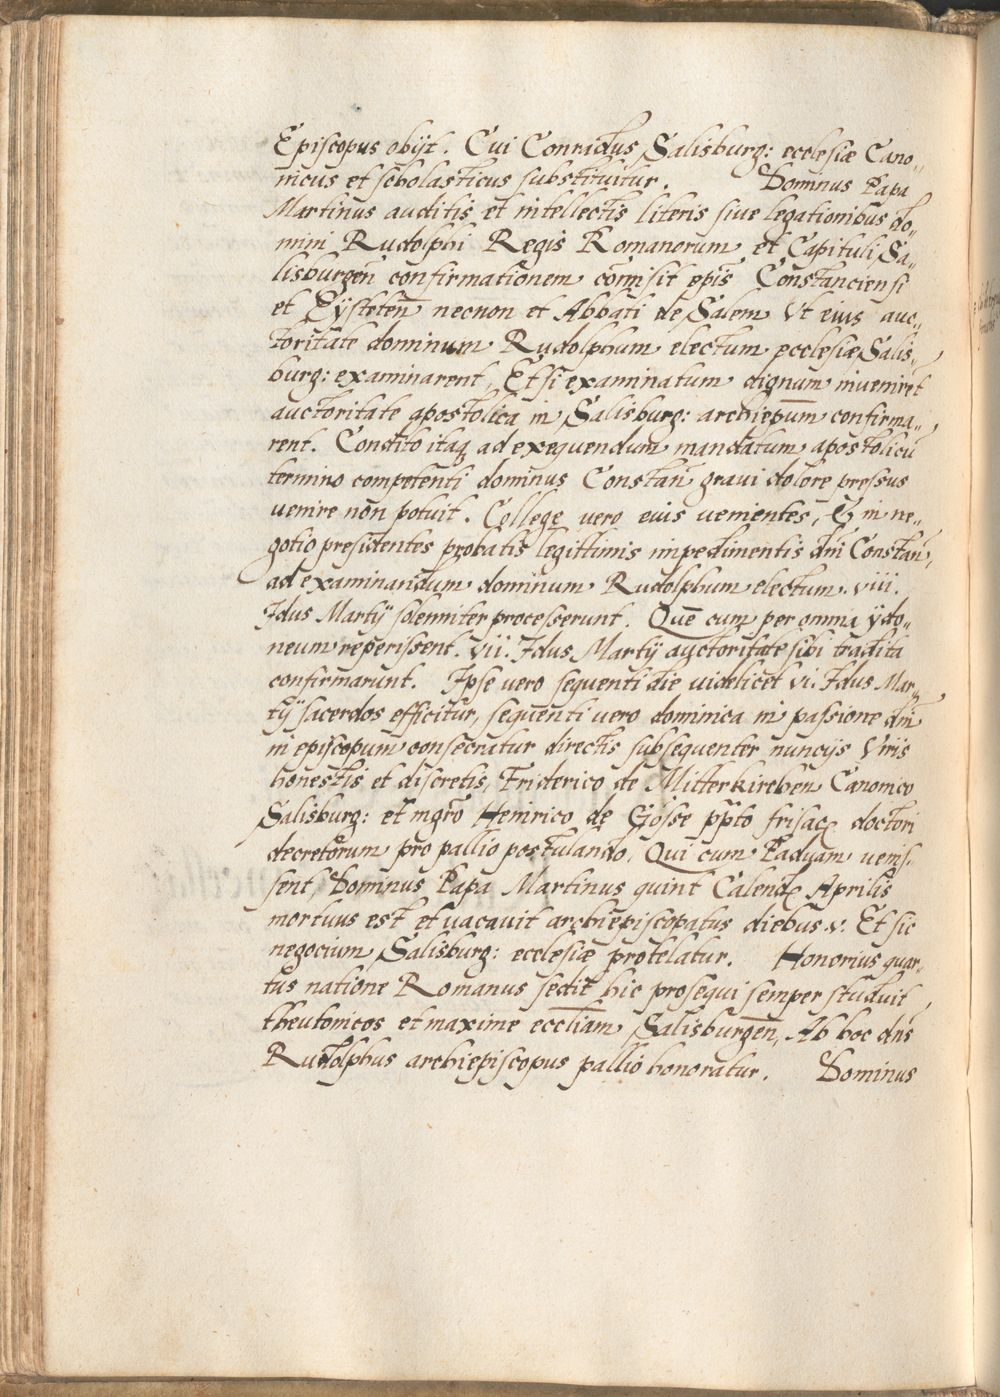 Episcopus obijt. Cui Conradus Salisburg: ecclesiæ Cano„
nicus et scholasticus substituitur. Dominus Papa
Martinus auditis et intellectis literis siue legationibus do„
mini Rudolphi Regis Romanorum et Capituli Sa„
lisburgen̄ confirmationem com̄isit ep̄is Constanciensi
et Eysteten̄ necnon et Abbati de Salem Vt eius auc„
toritate dominum Rudolphum electum ecclesiæ Salis„
burg: examinarent, Et si examinatum dignum inueniret
auctoritate apostolica in Salisburg: archiepūm confirma„
rent. Condito itaq₃ ad exequendum mandatum apostolicū
termino competenti dominus Constan̄ graui dolore pressus
uenire non potuit. Collegę vero eius uenientes, & in ne„
gotio presidentes probatis legittimis impedimentis dn̄i Constan̄,
ad examinandum dominum Rudolphum electum. viii.
Idus Martij solenniter processerunt. Quē cum per omnia ydo„
neum reperissent. vii. Idus Martij auctoritate sibi tradita
confirmarunt. Ipse vero sequenti die uidelicet vi. Idus Mar„
tij sacerdos efficitur, sequenti vero dominica in passione dn̄i
in episcopum consecratur directis subsequenter nuncijs Viris
honestis et discretis, Friderico de Mitterkirchen̄ Canonico
Salisburg: et mgr̄o Heinrico de Gösse pp̄to frisac̨ doctori
decretorum pro pallio postulando, Qui cum Paduam uenis„
sent, Dominus Papa Martinus quint Calend̨ Aprilis
mortuus est et uacauit archiepiscopatus diebus .v. Et sic
negocium Salisburg: ecclesiæ protelatur. Honorius quar„
tus natione Romanus sedit hic prosequi semper studuit
theutonicos et maxime eccl̄iam Salisburgen̄, Ab hoc dn̄s
Rudolphus archiepiscopus pallio honoratur. Dominus